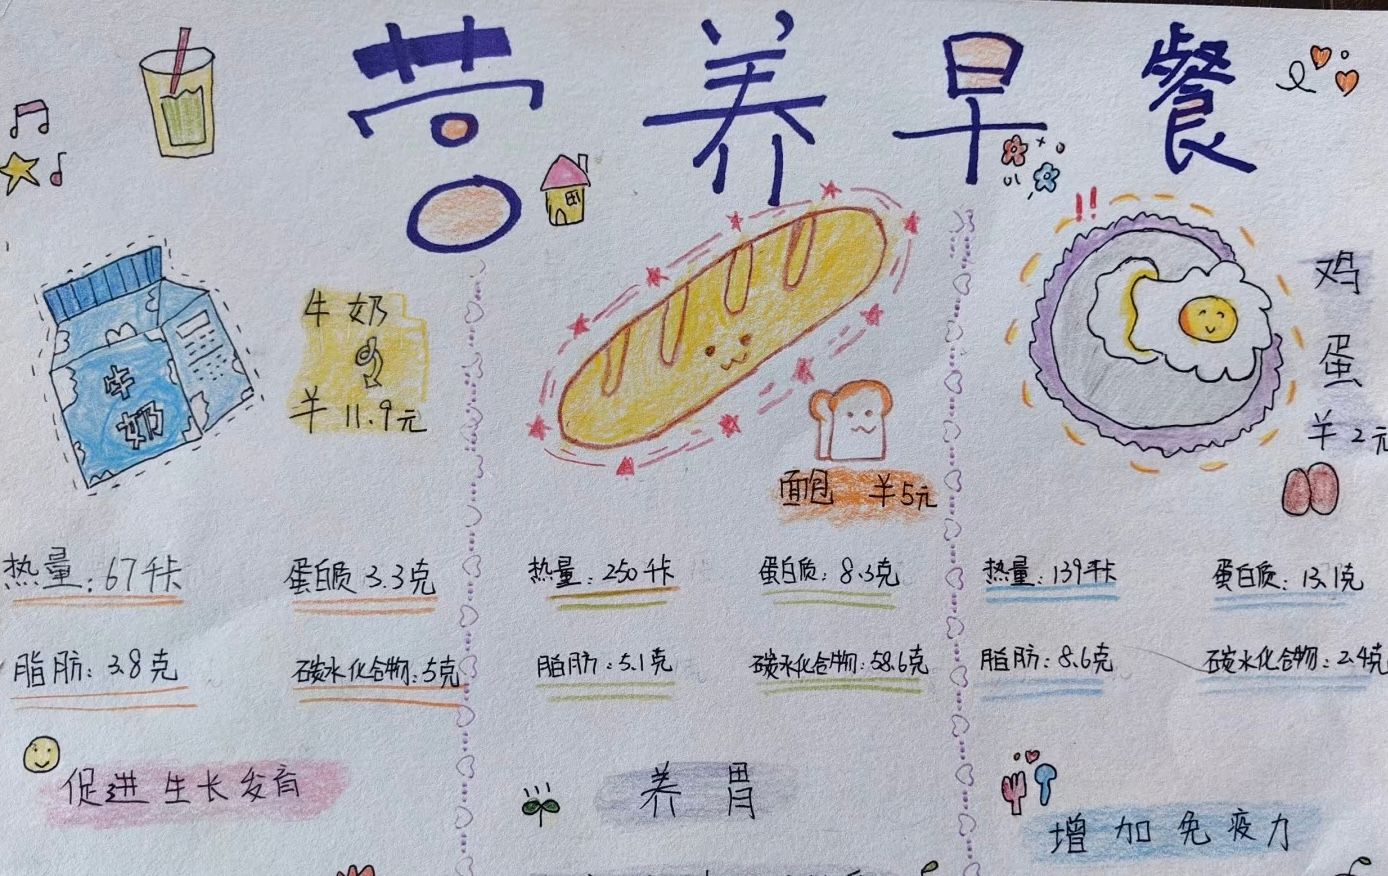 营养早餐
牛奶
牛奶
¥11.9元
面包 ¥5元
鸡蛋
¥2元
热量:67千卡
蛋白质3.3克
脂肪:3.8克
碳水化合物:5克
热量:250千卡
蛋白质:8.3克
脂肪:5.1克
碳水化合物:58.6克
热量:139千卡
蛋白质:13.1克
脂肪:8.6克
碳水化合物:2.4克
促进生长发育
养胃
增加免疫力